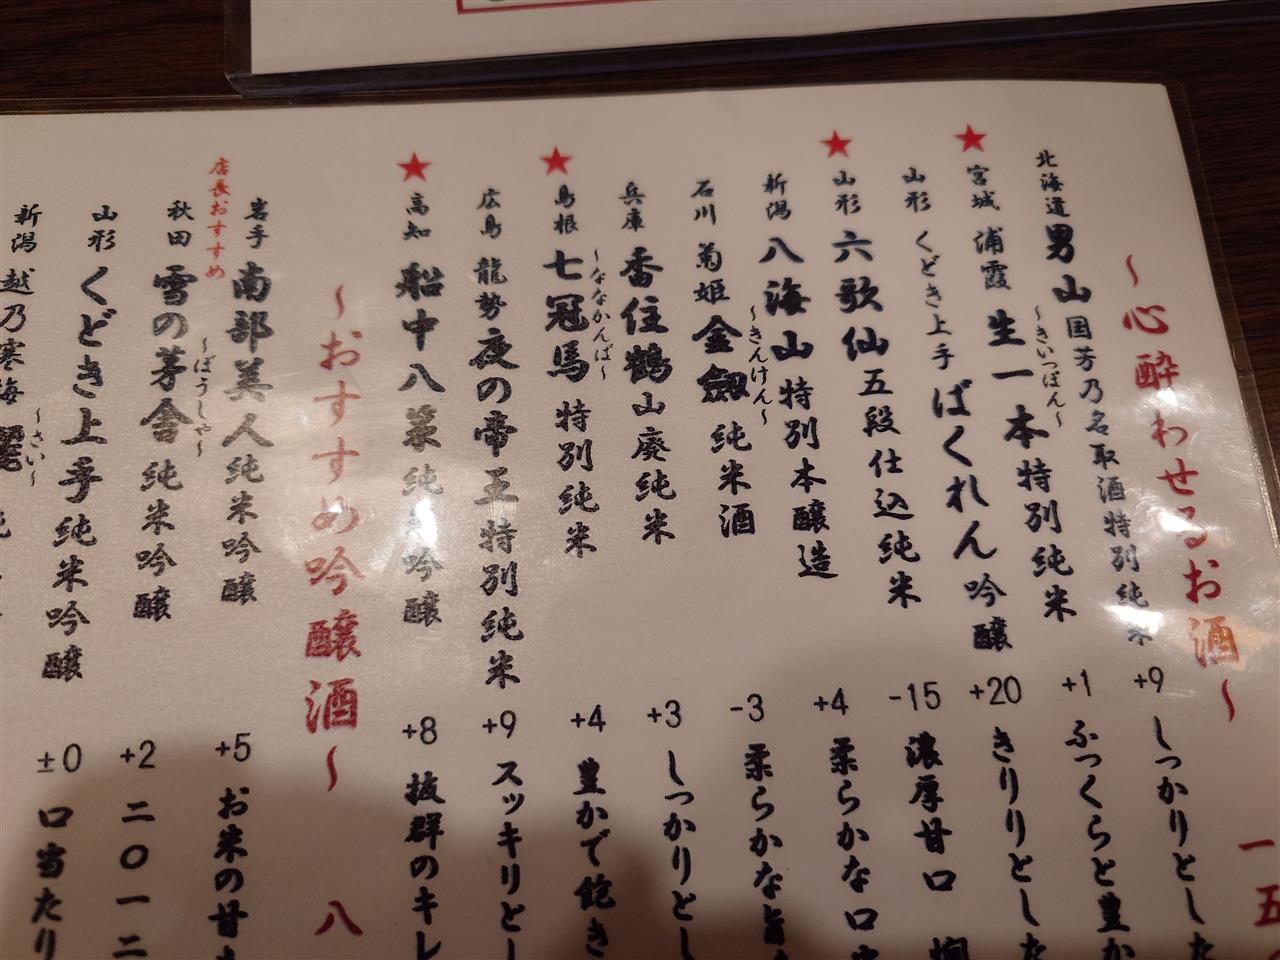 ～心酔わせるお酒～ 一五
北海道 男山 国芳乃名取酒 特別純米 +9 しっかりとした
★ 宮城 浦霞 生一本 ～きいっぽん～ 特別純米 +1 ふっくらと豊か
山形 くどき上手 ばくれん 吟醸 +20 きりりとした
★ 山形 六歌仙 五段仕込純米 -15 濃厚甘口
新潟 八海山 特別本醸造 +4 柔らかな口
石川 菊姫 金劔 ～きんけん～ 純米酒 -3 柔らかな旨
兵庫 香住鶴 山廃純米 +3 しっかりと
★ 島根 七冠馬 ～ななかんば～ 特別純米 +4 豊かで飽き
広島 龍勢 夜の帝王 特別純米 +9 スッキリとし
★ 高知 船中八策 純米吟醸 +8 抜群のキレ
～おすすめ吟醸酒～ 八
岩手 南部美人 純米吟醸 +5 お米の甘
店長おすすめ
秋田 雪の茅舎 ～ぼうしゃ～ 純米吟醸 +2 二〇一二
山形 くどき上手 純米吟醸 ±0 口当たり
新潟 越乃寒海 ～さい～